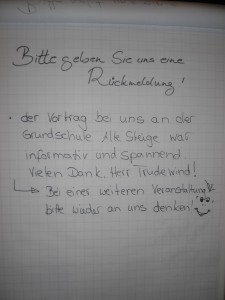 Bitte geben Sie uns eine
Rückmeldung!
• der Vortrag bei uns an der
Grundschule Alte Steige war
informativ und spannend
Vielen Dank, Herr Trudewind!
↳ Bei einer weiteren Veranstaltung
bitte wieder an uns denken!